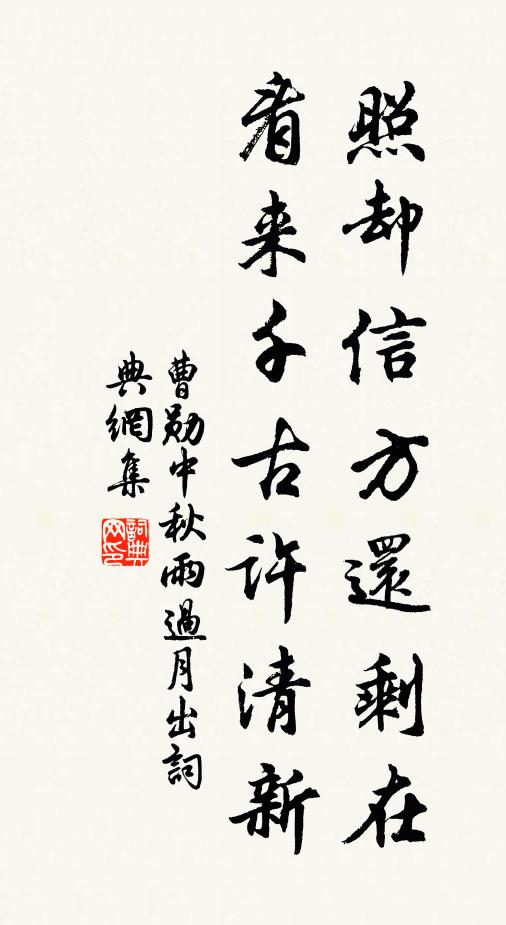 照却信方還剩在
看来千古許清新
曹勛中秋雨過月出詞
典網集
詞典网印